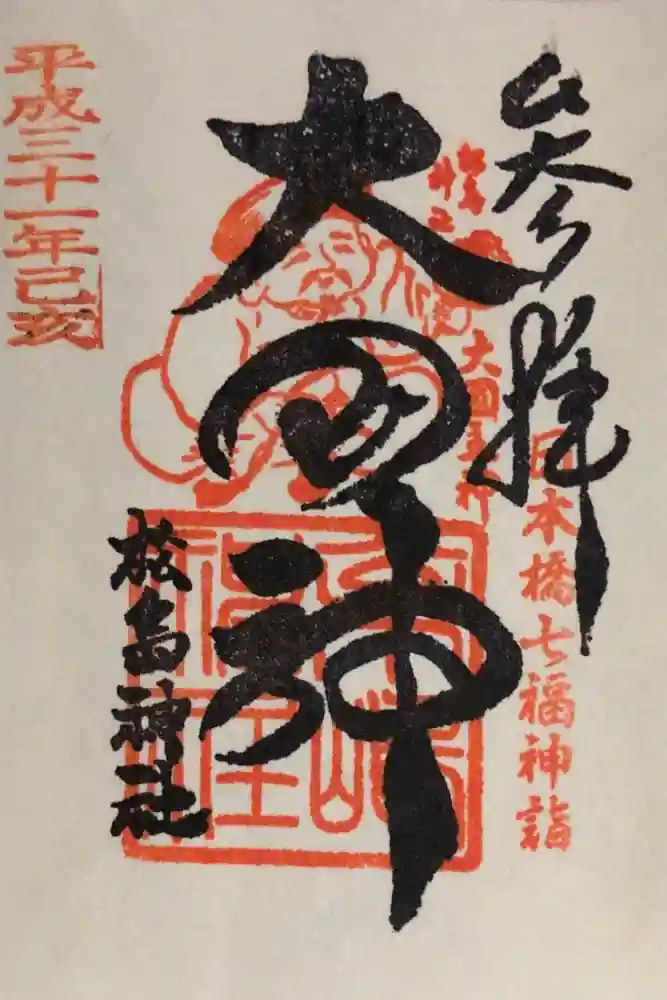 参拝
日本橋七福神詣
大國主神
大国神
松島神社
平成三十一年己亥